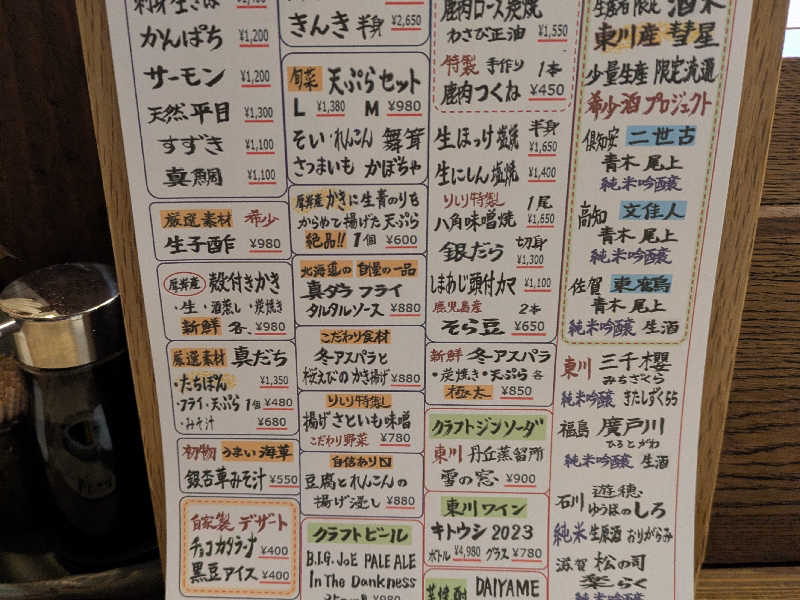 かんぱち ¥1,200
サーモン ¥1,200
天然 平目 ¥1,300
すずき ¥1,100
真鯛 ¥1,100
厳選素材 希少
生子酢 ¥980
厚岸産 殻付きかき
・生・酒蒸し・炭焼き
新鮮 各、¥980
厳選素材 真だち
・たちぽん ¥1,350
・フライ・天ぷら 1個 ¥480
・みそ汁 ¥680
初物 うまい海草
銀杏草みそ汁 ¥550
自家製 デザート
チョコカタラーナ ¥400
黒豆アイス ¥400
きんき 半身 ¥2,650
旬菜 天ぷらセット
L ¥1,380 M ¥980
そい・れんこん 舞茸
さつまいも かぼちゃ
厚岸産かきに生青のりを
からめて揚げた天ぷら
絶品!! 1個 ¥600
北海道の自慢の一品
真ダラ フライ
タルタルソース ¥880
こだわり食材
冬アスパラと
桜えびのかき揚げ ¥880
りしり特製
揚げさといも味噌
こだわり野菜 ¥780
自信あり
豆腐とれんこんの
揚げ浸し ¥880
クラフトビール
B.I.G. JoE PALE ALE
In The Dankness
鹿肉ロース炭焼
わさび正油 ¥1,550
特製 手作り 1本
鹿肉つくね ¥450
生ほっけ塩焼 半身 ¥1,650
生にしん塩焼 ¥1,400
りしり特製 1尾
八角味噌焼 ¥1,650
銀だら 切身 ¥1,300
しまあじ頭付カマ ¥1,100
鹿児島産 2本
そら豆 ¥650
新鮮 冬アスパラ
・炭焼き・天ぷら 各
極太 ¥850
クラフトジンソーダ
東川 丹丘蒸留所
雪の窓 ¥900
東川ワイン
キトウシ 2023
ボトル ¥4,980 グラス ¥780
DAIYAME
生産者限定 酒米
東川産 彗星
少量生産 限定流通
希少酒プロジェクト
倶知安 二世古
青木 尾上
純米吟醸
高知 文佳人
青木 尾上
純米吟醸
佐賀 東鶴
青木 尾上
純米吟醸 生酒
東川 三千櫻
みちざくら
純米吟醸 きたしずく55
福島 廣戸川
ひろとがわ
純米吟醸 生酒
石川 遊穂
ゆうほのしろ
純米 生原酒 おりがらみ
滋賀 松の司
楽らく
純米吟醸